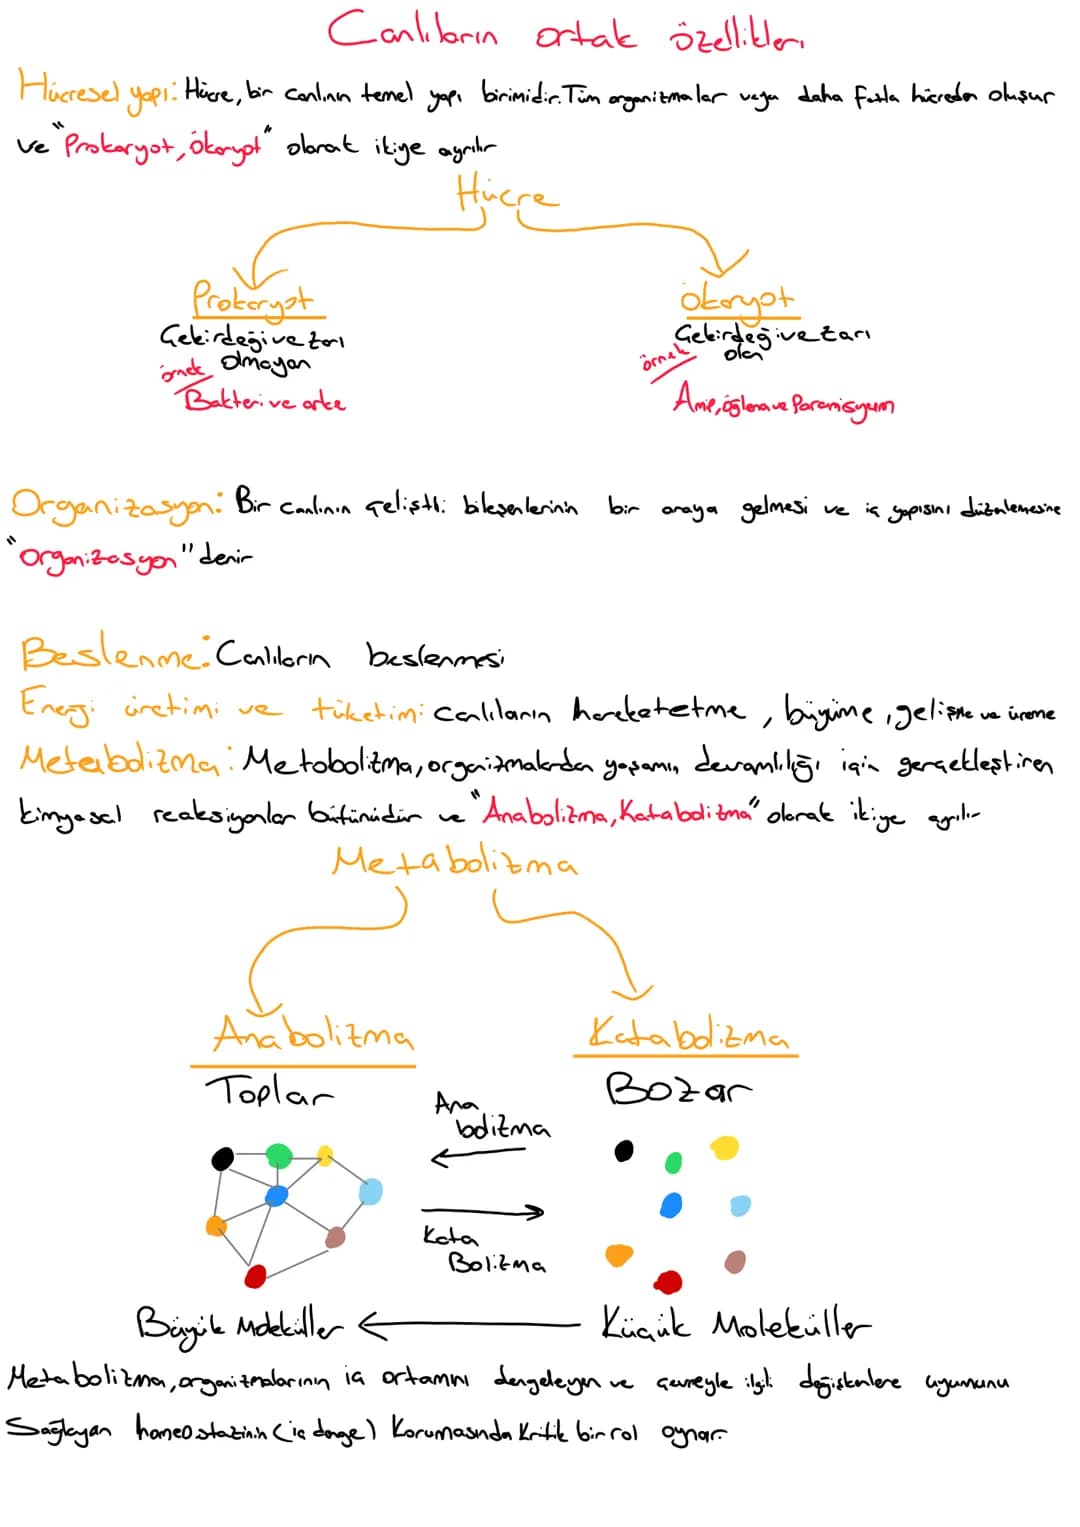 Canlıların ortak özellikleri
Hücresel yapı: Hücre, bir canlının temel yapı birimidir. Tüm organizmalar veya daha fazla hücreden oluşur
ve "Prokaryot, Ökaryot" olarak ikiye ayrılır
Hücre
Prokaryot
ökaryot
Çekirdeği ve zarı
olmayan
Çekirdeği ve zarı
olan
örnek
Bakteri ve arke
örnek
Amip, öglena ve Paramisyum
Organizasyon: Bir canlının çeliştli bileşenlerinin bir araya gelmesi ve iç yapısını düzenlemesine
"Organizasyon" denir
Beslenme: Canlıların beslenmesi
Enerji üretimi ve tüketimi canlıların hareketetme, büyüme, gelişme ve üreme
Metabolizma: Metobolizma, organizmalardan yaşamın devamlılığı için gerçekleştiren
kimyasal reaksiyonlar bütünüdür ve "Anabolizma, Katabolizma" olarak ikiye ayrılır
Metabolizma
Anabolizma
Katabolizma
Toplar
Bozar
Ana
bolizma
Kata
Bolizma
Büyük Moleküller
Küçük Moleküller
Metabolizma, organizmalarının iç ortamını dengeleyen ve çevreyle ilgili değişkenlere uyumunu
Sağlayan homeostazinin (iç denge) Korumasında Kritik bir rol oynar.